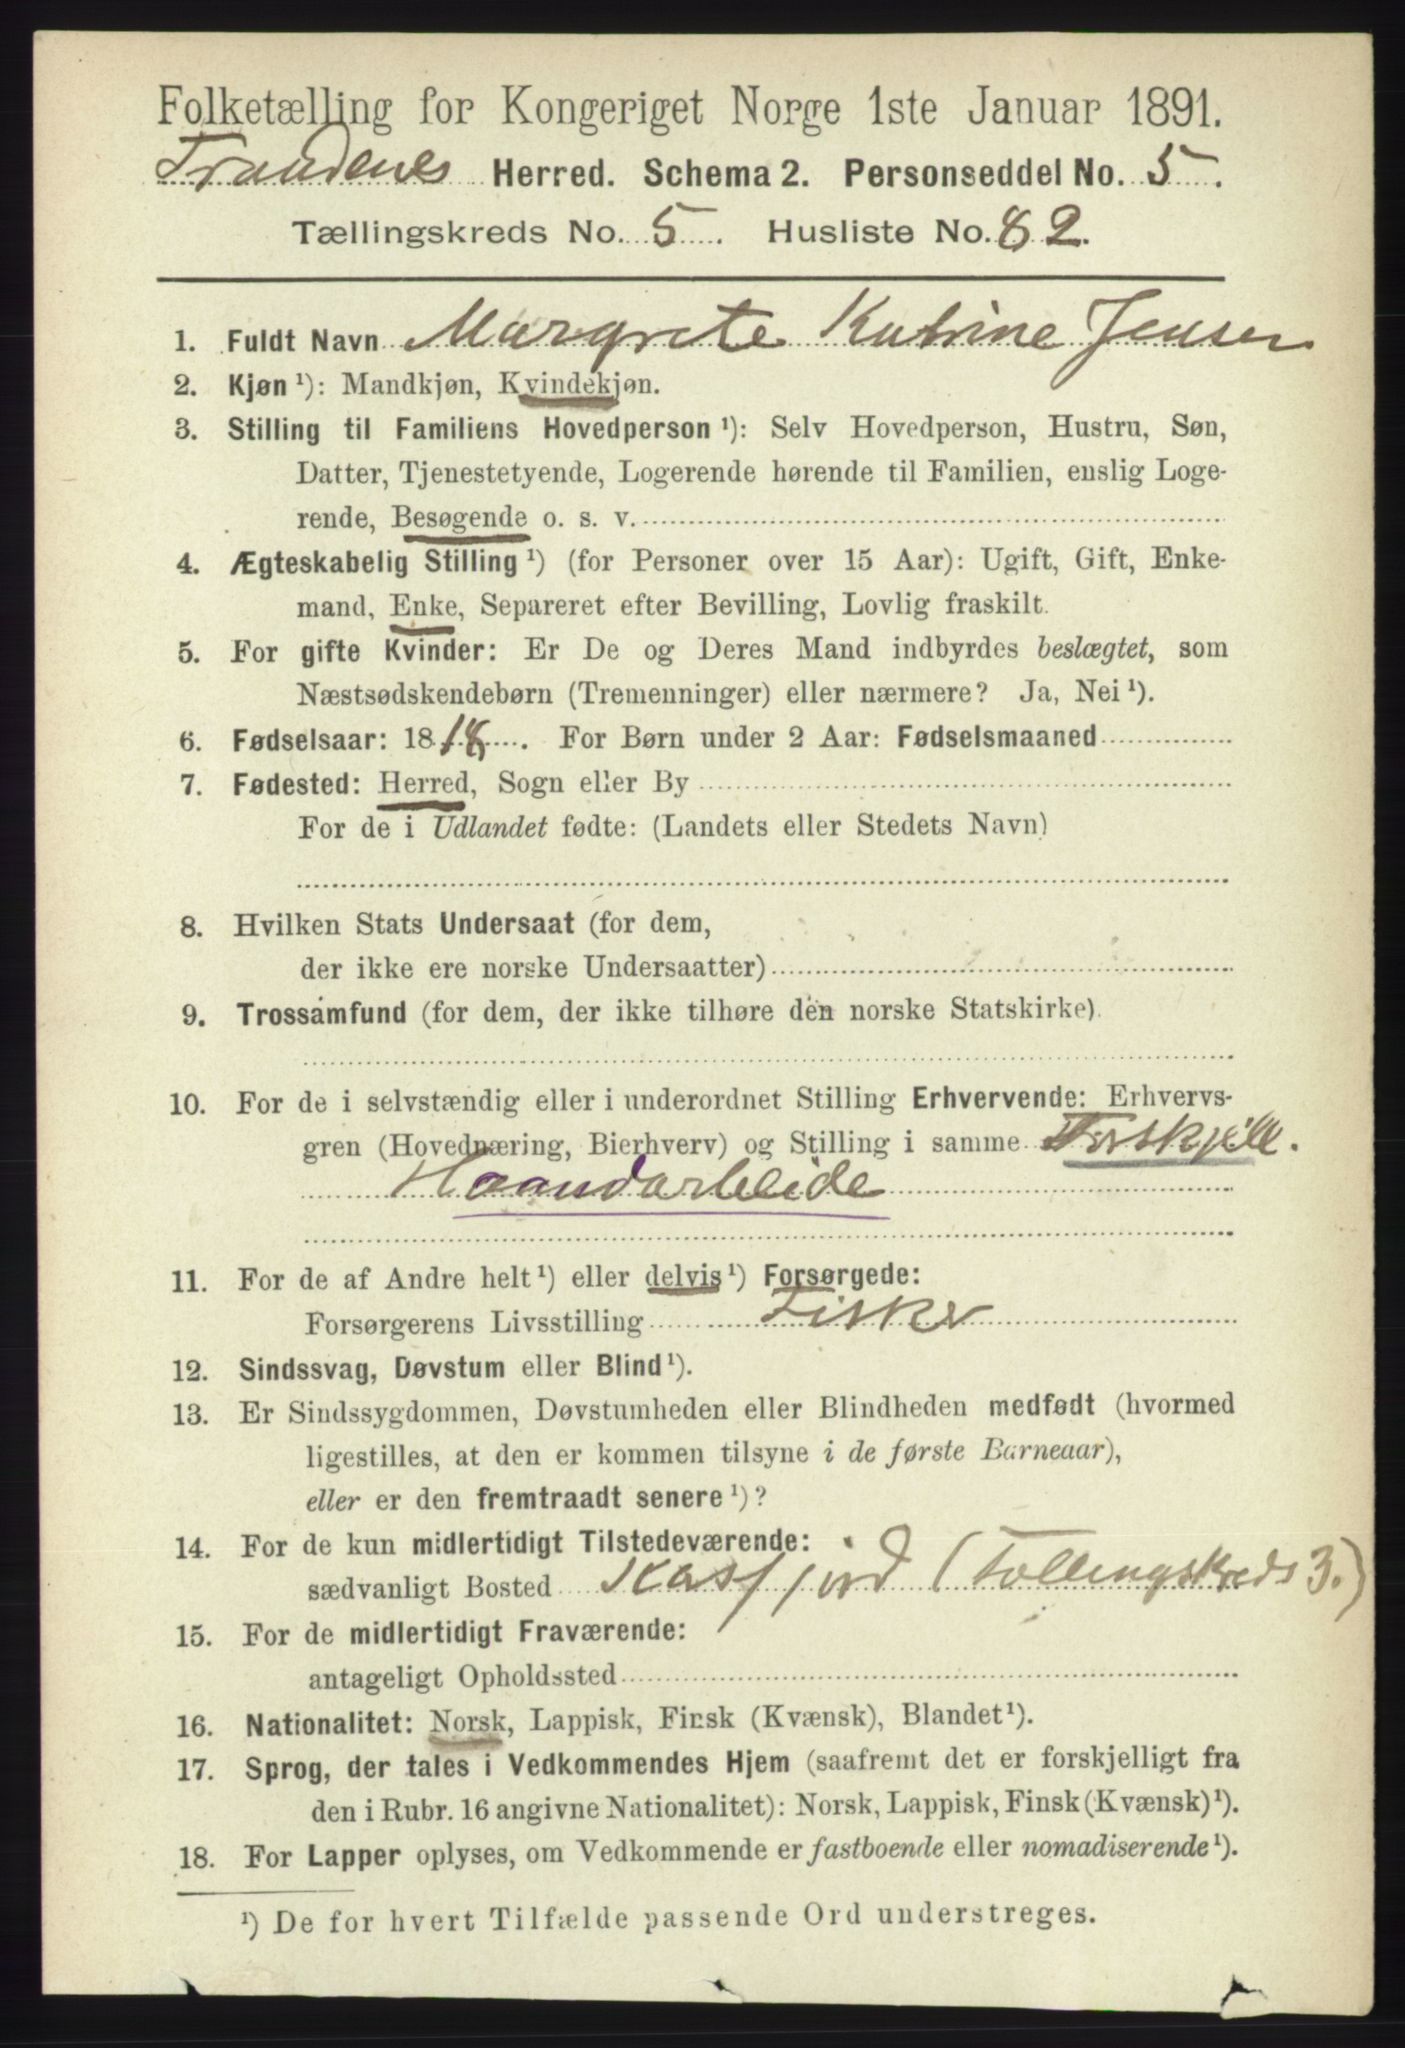 Folketælling for Kongeriget Norge 1ste Januar 1891.
Trondenes Herred. Schema 2. Personseddel No. 5.
Tællingskreds No. 5. Husliste No. 82.
1. Fuldt Navn Margrete Katrine Jensen
2. Kjøn ¹): Mandkjøn, Kvindekjøn.
3. Stilling til Familiens Hovedperson ¹): Selv Hovedperson, Hustru, Søn,
Datter, Tjenestetyende, Logerende hørende til Familien, enslig Loge-
rende, Besøgende o. s. v.
4. Ægteskabelig Stilling ¹) (for Personer over 15 Aar): Ugift, Gift, Enke-
mand, Enke, Separeret efter Bevilling, Lovlig fraskilt.
5. For gifte Kvinder: Er De og Deres Mand indbyrdes beslægtet, som
Næstsødskendebørn (Tremenninger) eller nærmere? Ja, Nei ¹).
6. Fødselsaar: 1818. For Børn under 2 Aar: Fødselsmaaned
7. Fødested: Herred, Sogn eller By
For de i Udlandet fødte: (Landets eller Stedets Navn)
8. Hvilken Stats Undersaat (for dem,
der ikke ere norske Undersaatter)
9. Trossamfund (for dem, der ikke tilhøre den norske Statskirke).
10. For de i selvstændig eller i underordnet Stilling Erhvervende: Erhvervs-
gren (Hovednæring, Bierhverv) og Stilling i samme Forskjell.
Haandarbeide
11. For de af Andre helt ¹) eller delvis ¹) Forsørgede:
Forsørgerens Livsstilling Fisker
12. Sindssvag, Døvstum eller Blind ¹).
13. Er Sindssygdommen, Døvstumheden eller Blindheden medfødt (hvormed
ligestilles, at den er kommen tilsyne i de første Barneaar),
eller er den fremtraadt senere ¹)?
14. For de kun midlertidigt Tilstedeværende:
sædvanligt Bosted Kasfjord (Tællingskreds 3.)
15. For de midlertidigt Fraværende:
antageligt Opholdssted
16. Nationalitet: Norsk, Lappisk, Finsk (Kvænsk), Blandet ¹).
17. Sprog, der tales i Vedkommendes Hjem (saafremt det er forskjelligt fra
den i Rubr. 16 angivne Nationalitet): Norsk, Lappisk, Finsk (Kvænsk) ¹).
18. For Lapper oplyses, om Vedkommende er fastboende eller nomadiserende ¹).
¹) De for hvert Tilfælde passende Ord understreges.